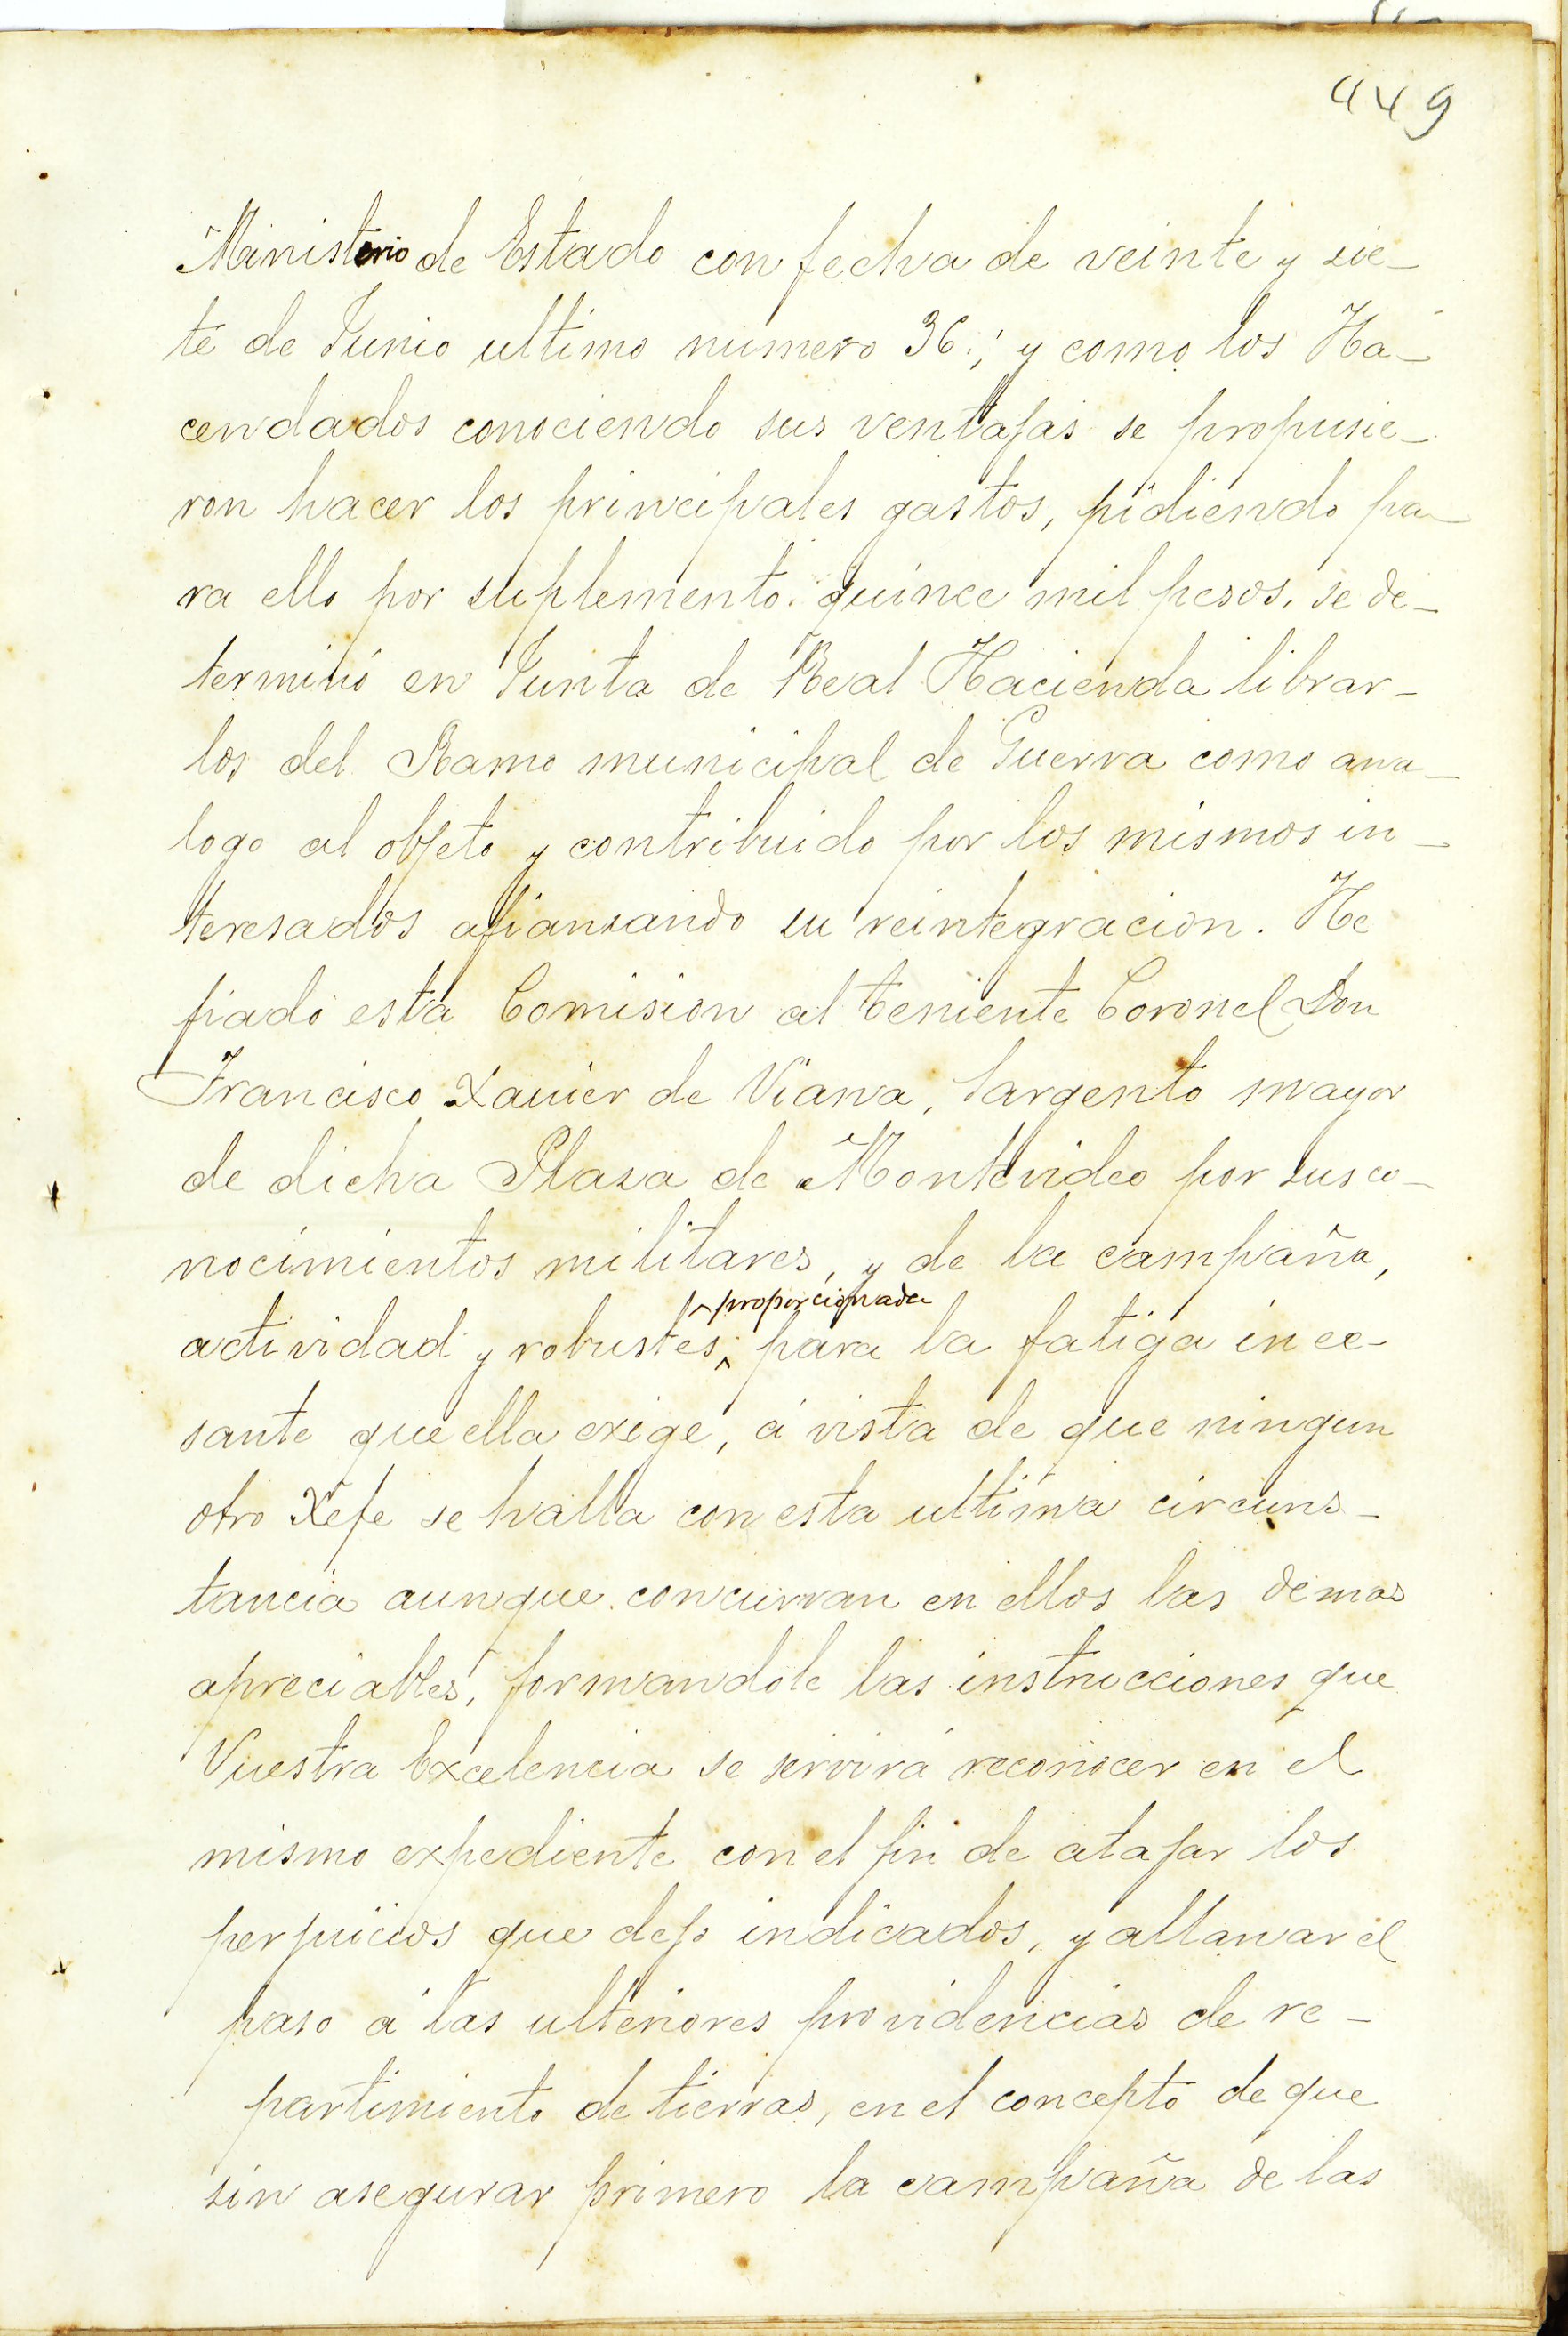 449
Ministerio de Estado con fecha de veinte y sie-
te de Junio ultimo numero 36.; y como los Ha-
cendados conociendo sus ventajas se propusie-
ron hacer los principales gastos, pidiendo pa-
ra ello por suplemento quince mil pesos, se de-
terminó en Junta de Real Hacienda librar-
los del Ramo municipal de Guerra como ana-
logo al objeto y contribuido por los mismos in-
teresados afiansando su reintegracion. He
fiado esta Comision al teniente Coronel Don
Francisco Xavier de Viana, Sargento mayor
de dicha Plasa de Montevideo por sus co-
nocimientos militares, y de la campaña,
proporcionada
actividad y robustes, para la fatiga ince-
sante que ella exige, á vista de que ningun
otro Xefe se halla con esta ultima circuns-
tancia aunque concurran en ellos las demas
apreciables, formandole las instrucciones que
Vuestra Excelencia se servirá reconocer en el
mismo expediente con el fin de atajar los
perjuicios que dejo indicados, y allanar el
paso á las ulteriores providencias de re-
partimiento de tierras, en el concepto de que
sin asegurar primero la campaña de las